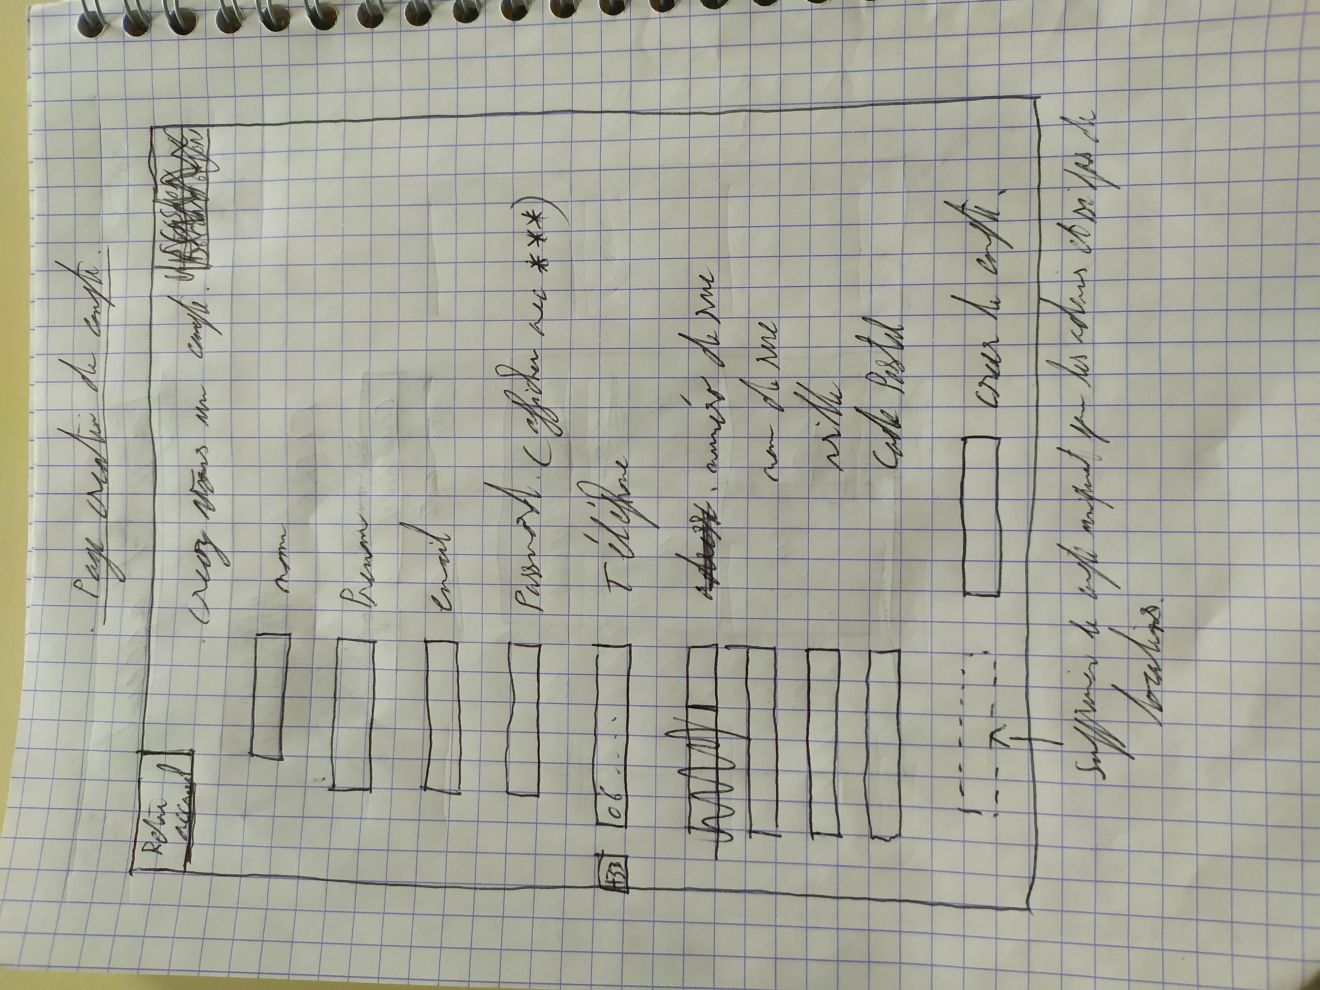 Page creation de compte.
Retour
accueil
Creez vous un compte.
nom
Prenom
email
Password. (afficher avec ***)
+33
06....
Téléphone
numéro de rue
nom de rue
ville
Code Postal
creer le compte.
Supprimer le compte uniquement pour les admins et si pas de
locations.